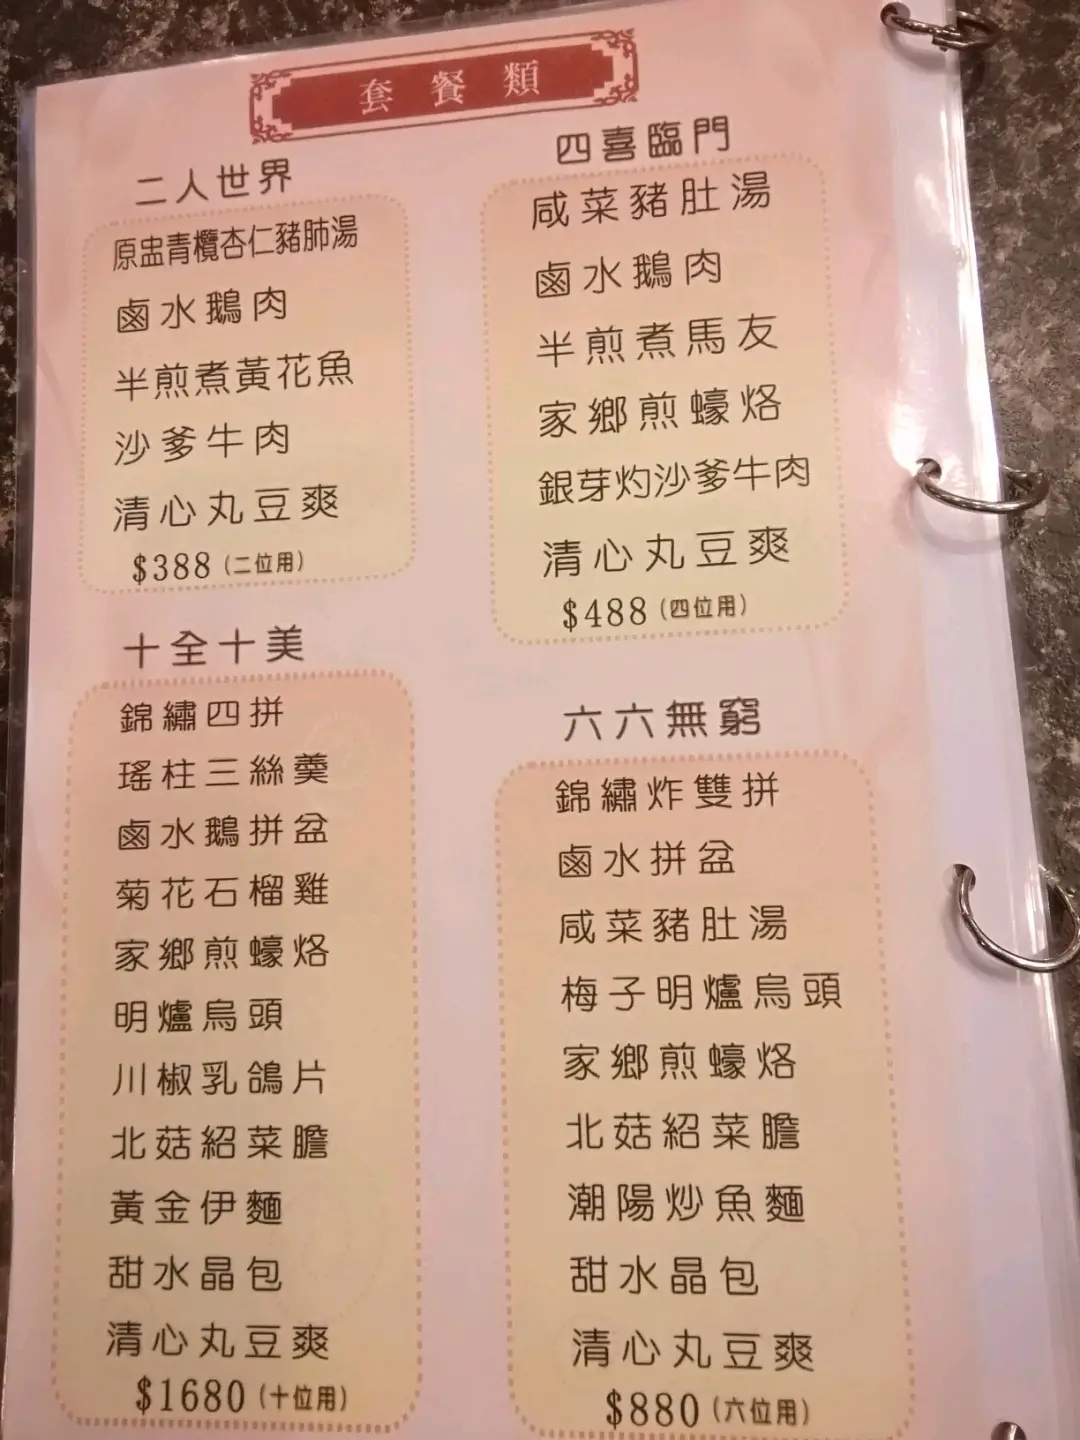 套餐類
二人世界
原盅青欖杏仁豬肺湯
鹵水鵝肉
半煎煮黃花魚
沙爹牛肉
清心丸豆爽
$388(二位用)
四喜臨門
咸菜豬肚湯
鹵水鵝肉
半煎煮馬友
家鄉煎蠔烙
銀芽灼沙爹牛肉
清心丸豆爽
$488(四位用)
十全十美
錦繡四拼
瑤柱三絲羹
鹵水鵝拼盆
菊花石榴雞
家鄉煎蠔烙
明爐烏頭
川椒乳鴿片
北菇紹菜膽
黃金伊麵
甜水晶包
清心丸豆爽
$1680(十位用)
六六無窮
錦繡炸雙拼
鹵水拼盆
咸菜豬肚湯
梅子明爐烏頭
家鄉煎蠔烙
北菇紹菜膽
潮陽炒魚麵
甜水晶包
清心丸豆爽
$880(六位用)